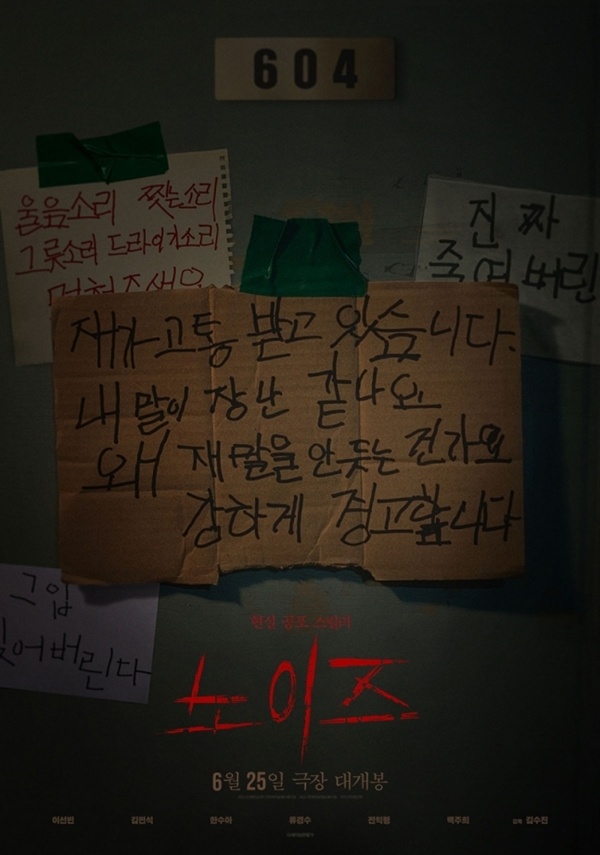 604
울음소리 찢는소리
그릇소리 드라이기소리
멈춰주세요
진짜
죽여버린
재가 고통 받고 있습니다.
내 말이 장난 같나요
왜 재 말을 안듯는 건가요
강하게 경고합니다
그입
찢어버린다
현실 공포 스릴러
노이즈
6월 25일 극장 대개봉
이선빈 김민석 한수아 류경수 전익령 백주희 감독 김수진